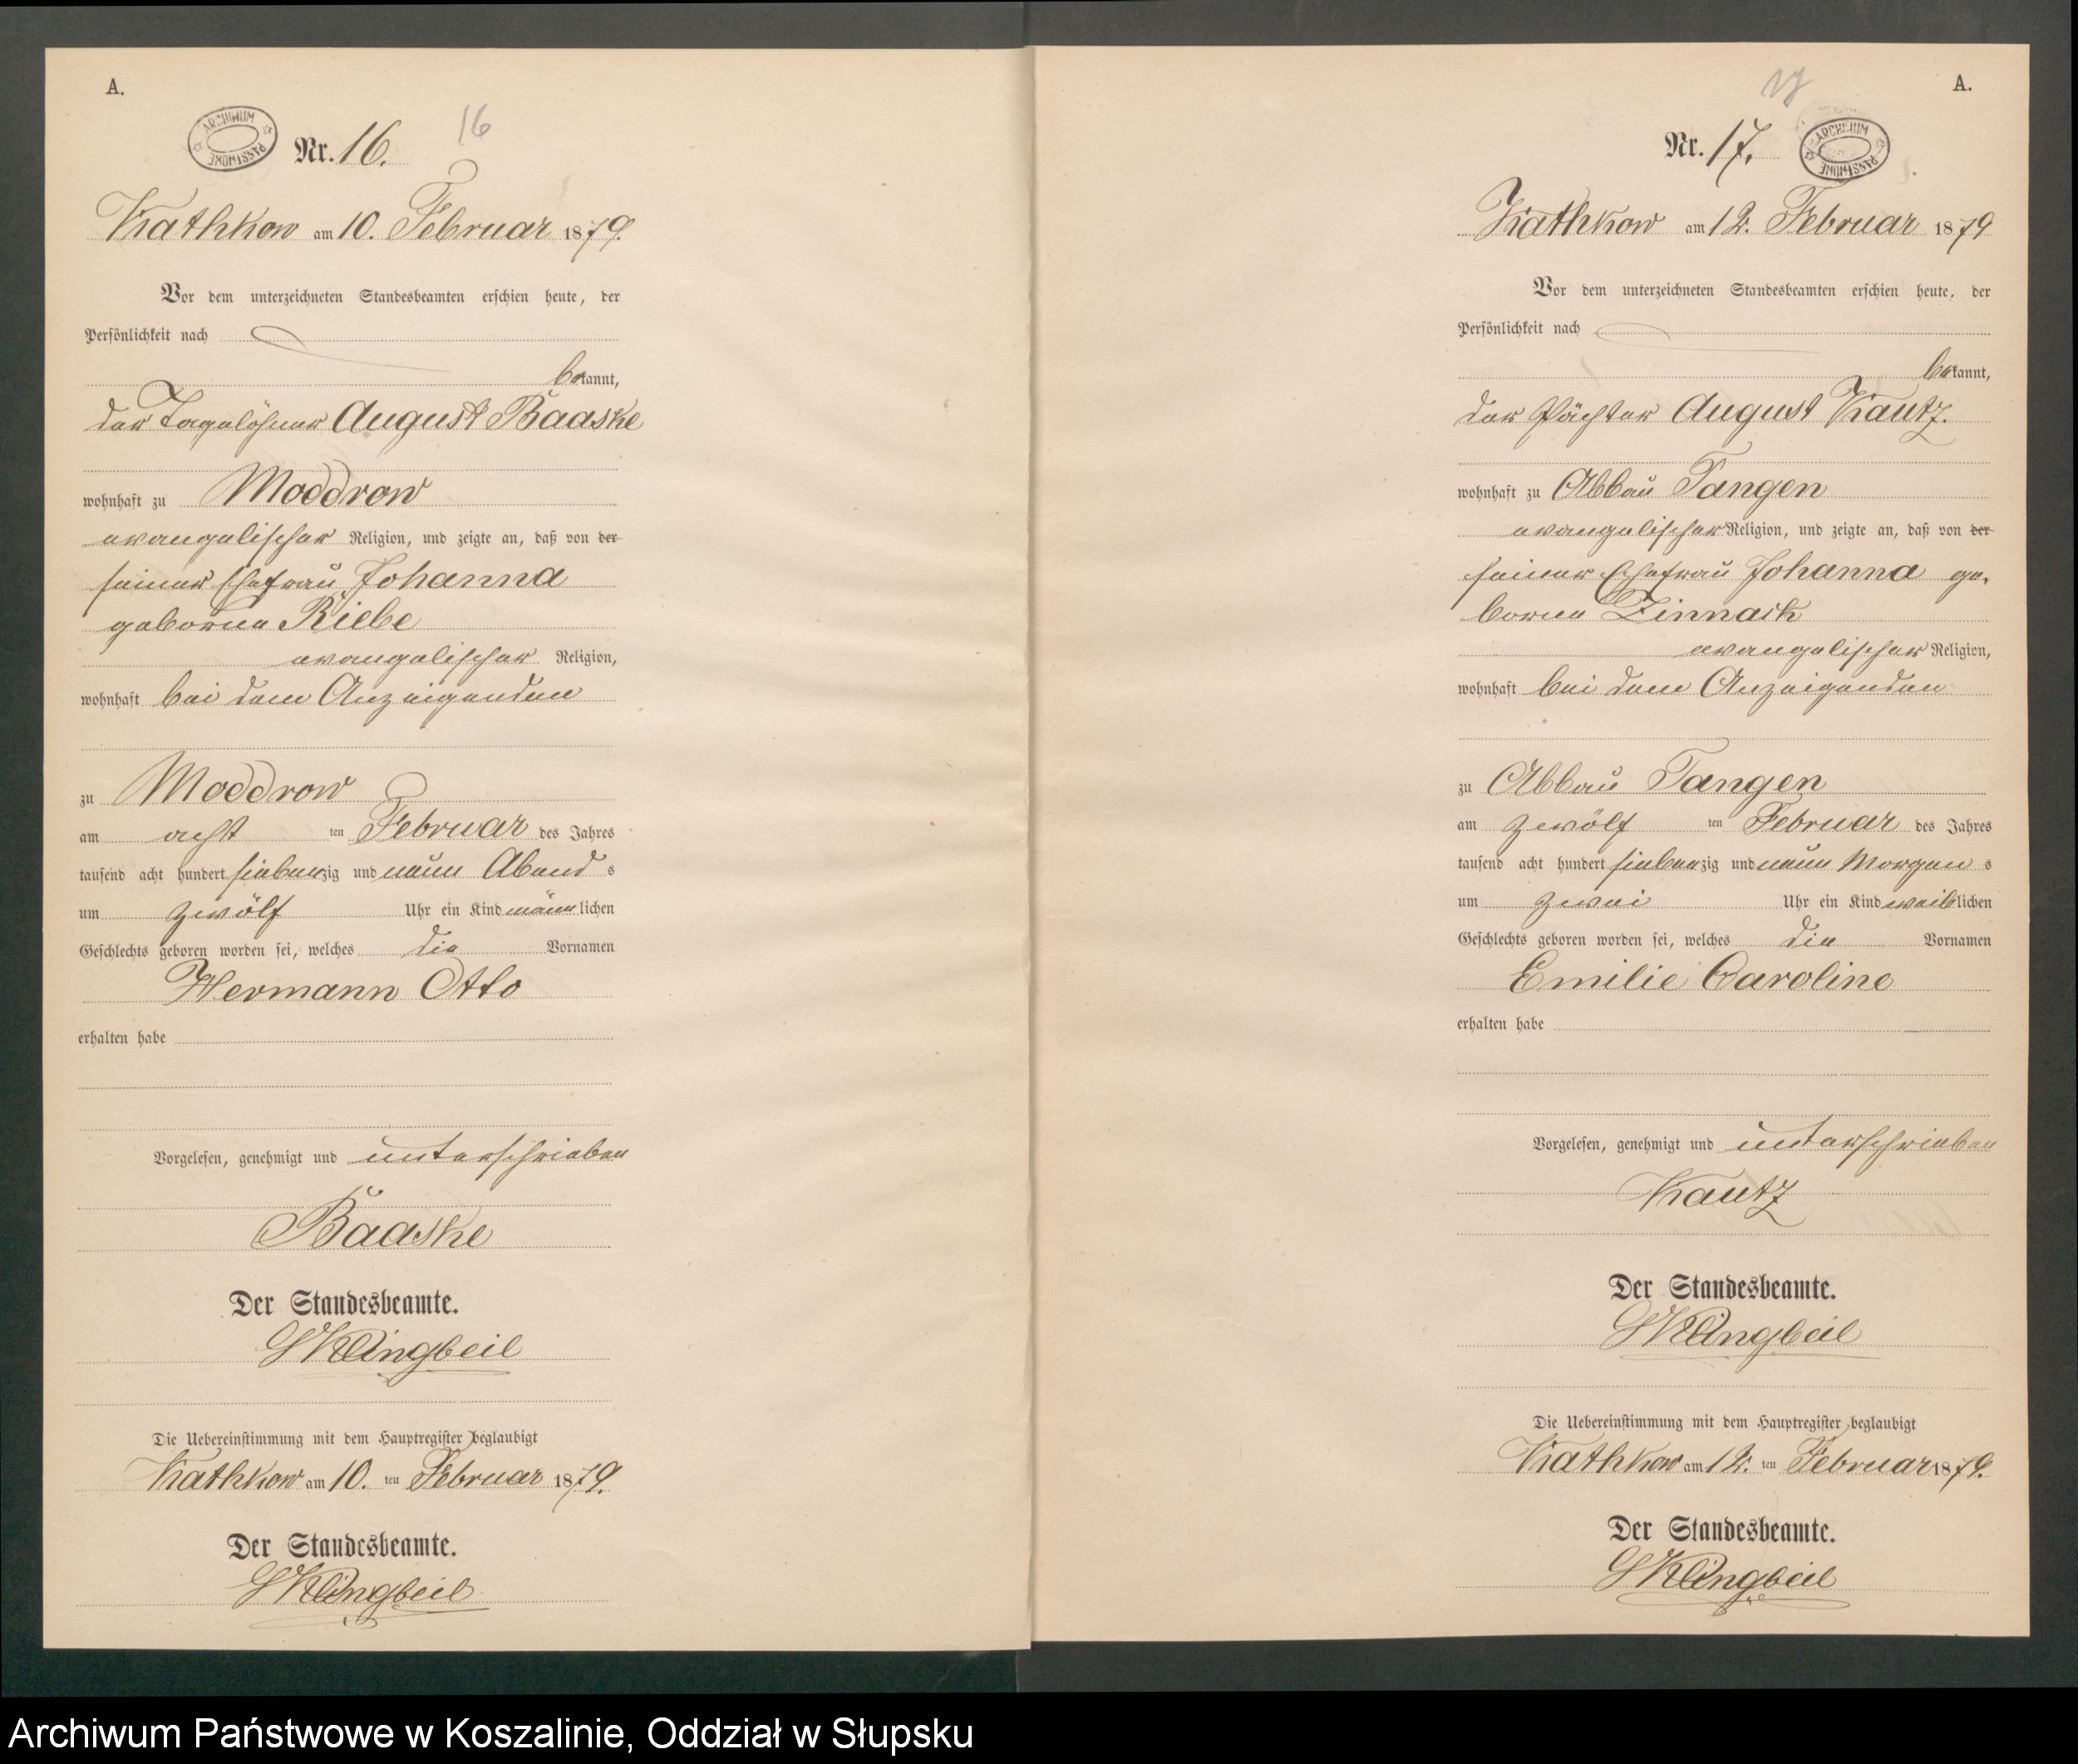 A.
ARCHIWUM PAŃSTWOWE
Nr. 16.
16
Kathkow am 10. Februar 1879.
Vor dem unterzeichneten Standesbeamten erschien heute, der
Persönlichkeit nach
bekannt,
der Tagelöhner August Baaske
wohnhaft zu Moddrow
evangelischer Religion, und zeigte an, daß von der
seiner Ehefrau Johanna
geborne Riebe
evangelischer Religion,
wohnhaft bei dem Anzeigenden
zu Moddrow
am acht ten Februar des Jahres
tausend acht hundert siebenzig und neun Abend s
um zwölf Uhr ein Kind männlichen
Geschlechts geboren worden sei, welches die Vornamen
Hermann Otto
erhalten habe
Vorgelesen, genehmigt und unterschrieben
Baaske
Der Standesbeamte.
Klingbeil
Die Uebereinstimmung mit dem Hauptregister beglaubigt
Kathkow am 10. ten Februar 1879.
Der Standesbeamte.
Klingbeil
17
A.
Nr. 17.
ARCHIWUM PAŃSTWOWE
Kathkow am 12. Februar 1879
Vor dem unterzeichneten Standesbeamten erschien heute, der
Persönlichkeit nach
bekannt,
der Pächter August Kautz.
wohnhaft zu Abbau Tangen
evangelischer Religion, und zeigte an, daß von der
seiner Ehefrau Johanna ge-
borne Zinnack
evangelischer Religion,
wohnhaft bei dem Anzeigenden
zu Abbau Tangen
am zwölf ten Februar des Jahres
tausend acht hundert siebenzig und neun Morgen s
um zwei Uhr ein Kind weiblichen
Geschlechts geboren worden sei, welches die Vornamen
Emilie Caroline
erhalten habe
Vorgelesen, genehmigt und unterschrieben
Kautz
Der Standesbeamte.
Klingbeil
Die Uebereinstimmung mit dem Hauptregister beglaubigt
Kathkow am 12. ten Februar 1879.
Der Standesbeamte.
Klingbeil
Archiwum Państwowe w Koszalinie, Oddział w Słupsku